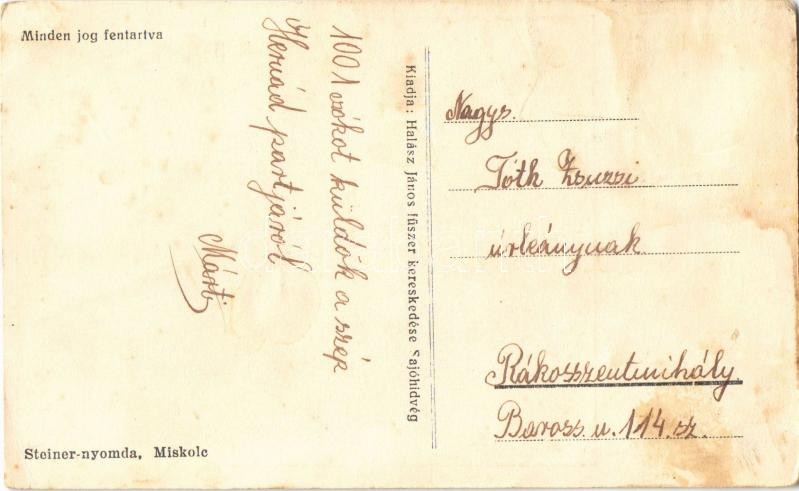 Minden jog fentartva
1001 csókot küldök a szép
Hernád partjáról
Márti
Kiadja: Halász János fűszer kereskedése Sajóhidvég
Nagys.
Tóth Zsuzsi
úrleánynak
Rákosszentmihály
Baross u. 114. sz.
Steiner-nyomda, Miskolc